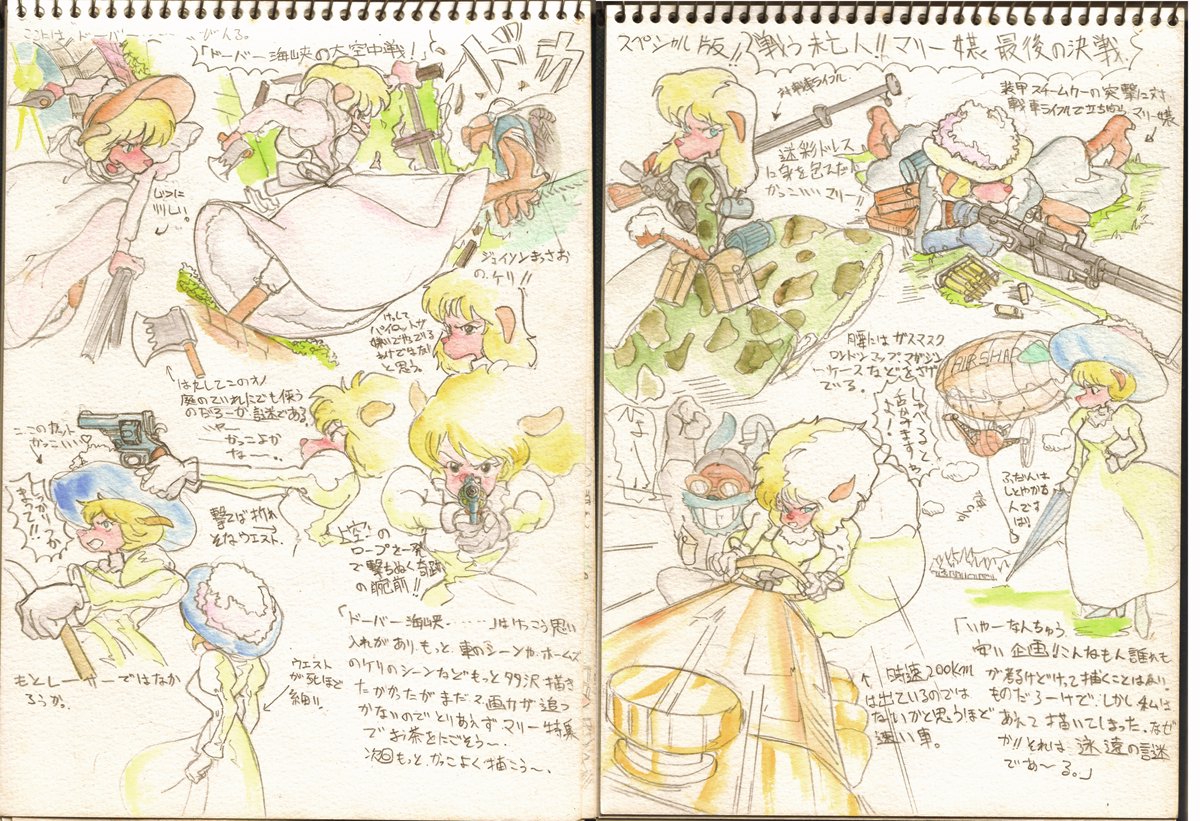 「ドーバー海峡の大空中戦!」
ドカ
じつに
りりしい。
ジョイソンまっさお
の、ケリ!!
けっして
パイロットが
嫌いでやっている
わけではない
と思う。
はたしてこのオノ
庭のていれにでも使う
のだろーか謎である。
いやー
かっこよか
なー…。
ここのカット
かっこいい
しっかりつか
まって!!
撃てば折れ
そなウエスト。
上空の
ロープを一発
で撃ちぬく奇跡
の腕前!!
もとレーサーではなか
ろうか。
ウエスト
が死ほど
細い。
「ドーバー海峡……」はけっこう思い
入れがあり、もっと車のシーンや、ホームズ
のケリのシーンなどもっと沢描き
たかったがまだまだ画力が追つ
かないのでとりあえずマリー特集
でお茶をにごそう〜。
次回もっと、かっこよく描こう〜。
スペシャル版!!戦う未亡人!!マリー嬢最後の決戦。
対戦車ライフル
装甲スチームカーの突撃に対
戦車ライフルで立ち向うマリー嬢
迷彩ドレス
に身を包んだ
かっこいいマリー!!
腰にはガスマスク
ロンドンマップ、マガジン
ケースなどをさげ
ている。
AIRSHAP
ひょ〜
しゃべると
舌かみます
よ!
ふだんは
しとやかな
人ではある
↑時速200km
は出ているのでは
ないかと思うほど
速い車。
「いやーなんちゅう
安い企画!!こんなもん誰れも
が考るけどけって描くことは無い
ものだろーけで、しかし私は
あえて描いてしまった。なぜ
か!!それは永遠の謎
であ〜る。」